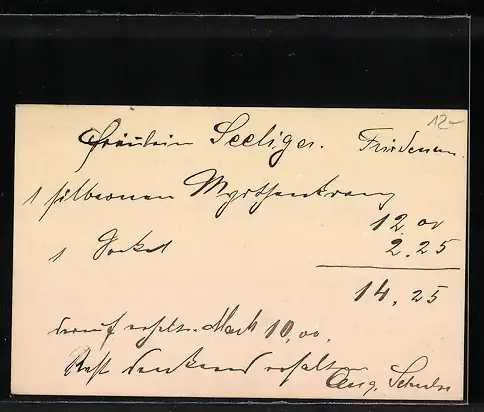 12-
Fräulein Seeliger. Friedenau.
1 silbernen Myrthenkranz
12.00
1 Sockel 2.25
14,25
darauf erhalten Mark 10,00.
Rest dankend erhalten
Aug. Schulze